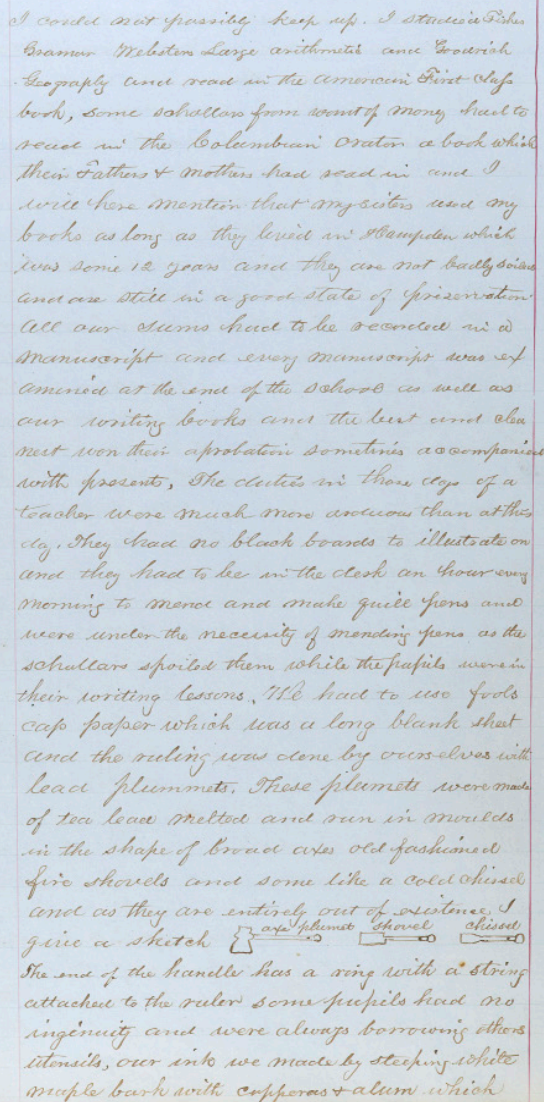 I could not possibly keep up. I studied Fishes
Gramar Websters Large arithmetic and Goodrich
Geography and read in the American First Class
book, some schollars from want of money had to
read in the Columbian orator a book which
their Fathers & mothers had read in and I
will here mention that my sisters used my
books as long as they lived in Hampden which
was some 12 years and they are not badly soiled
and are still in a good state of prizervation
all our sums had to be recorded in a
manuscript and every manuscript was ex
amined at the end of the school as well as
our writing books and the best and clea
nest won their aprobation sometimes accompanied
with presents, The duties in those days of a
teacher were much more arduous than at this
day. They had no black boards to illustrate on
and they had to be in the desk an hour every
morning to mend and make quill pens and
were under the necessity of mending pens as the
schollars spoiled them while the pupils were in
their writing lessons, We had to use fools
cap paper which was a long blank sheet
and the ruling was done by ourselves with
lead plummets. These plumets were made
of tea lead melted and run in moulds
in the shape of broad axes old fashioned
fire shovels and some like a cold chissel
and as they are entirely out of existence I
give a sketch axe plumet shovel chissel
The end of the handle has a ring with a string
attached to the ruler some pupils had no
ingenuity and were always borrowing others
utensils, our ink we made by steeping white
maple bark with copperas & alum which